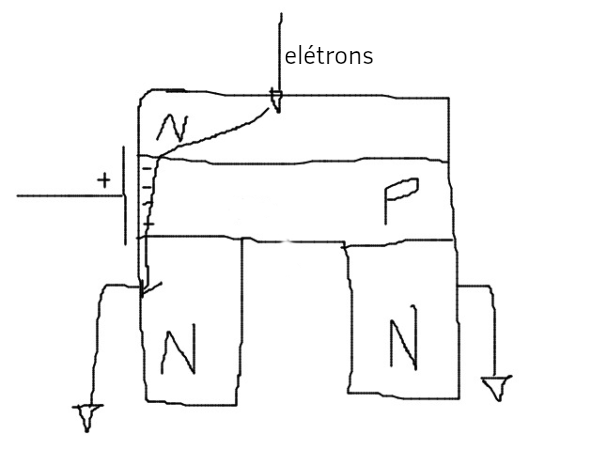 elétrons
N
+
P
N
N